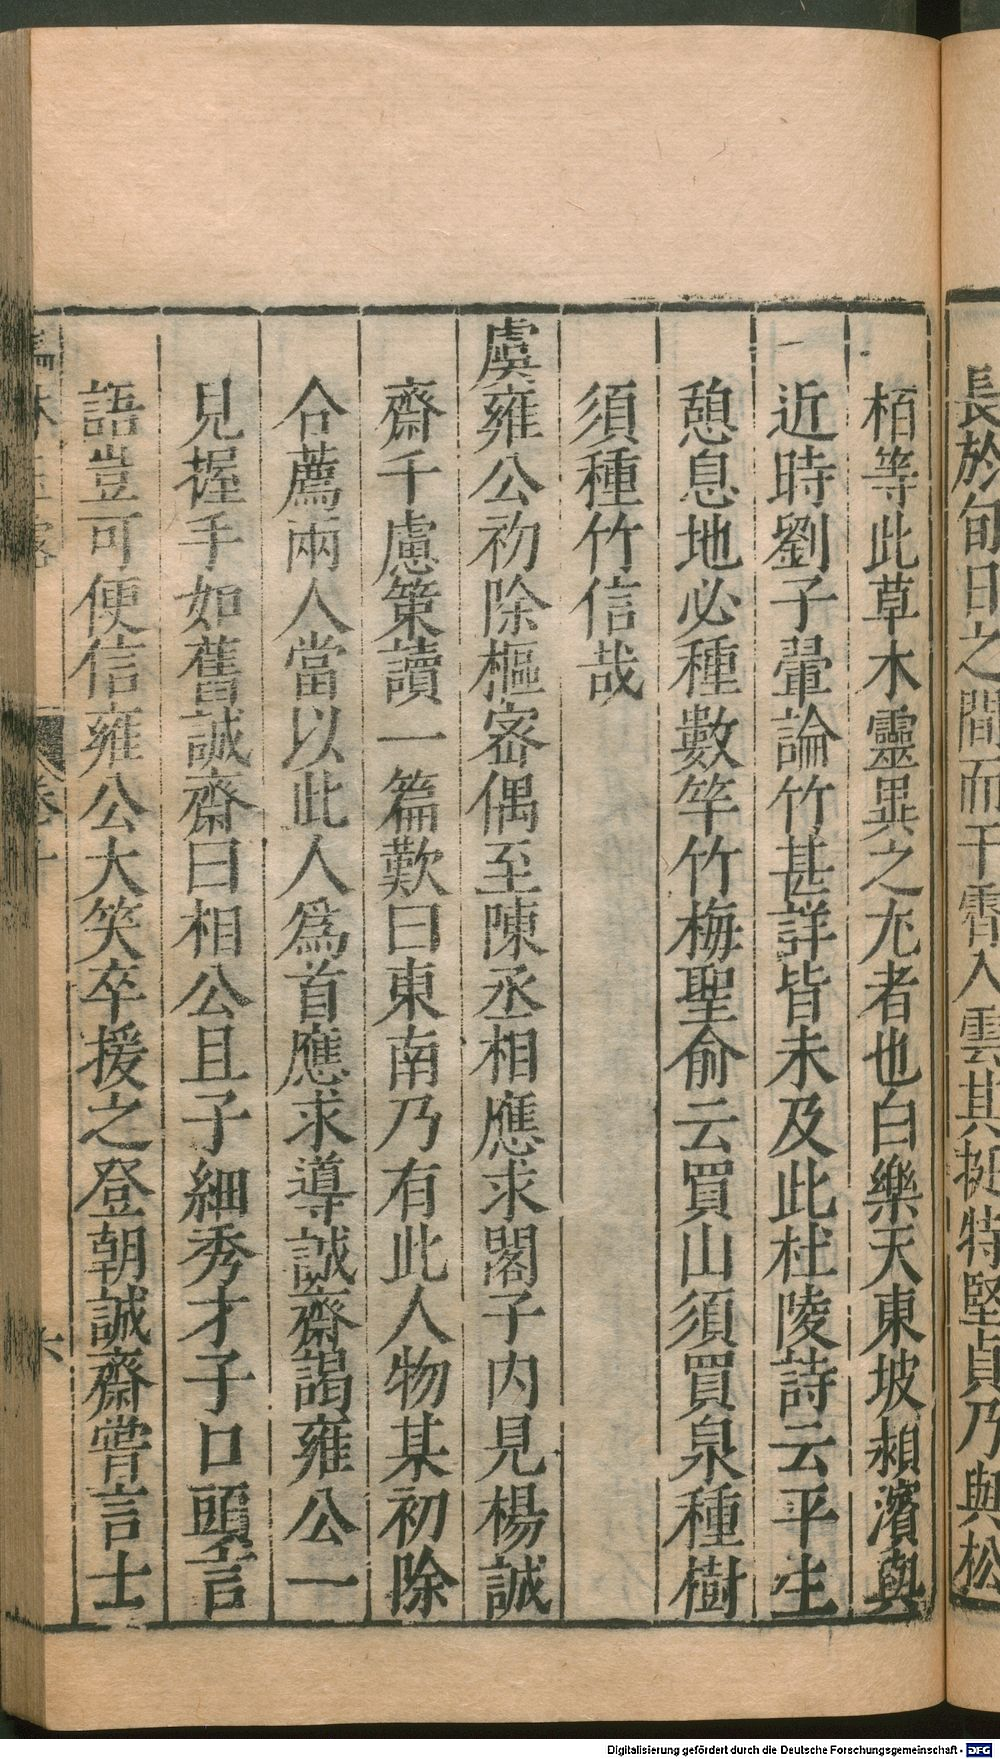 長於旬日之間而干霄入雲其挺特堅貞乃與松
栢等此草木靈異之尤者也白樂天東坡潁濱與
近時劉子翬論竹甚詳皆未及此杜陵詩云平生
憩息地必種數竿竹梅聖俞云買山須買泉種樹
須種竹信哉
虞雍公初除樞宻偶至陳丞相應求閣子内見楊誠
齋千慮策讀一篇歎曰東南乃有此人物某初除
合薦兩人當以此人爲首應求導誠齋謁雍公一
見握手如舊誠齋曰相公且子細秀才子口頭言
語豈可便信雍公大笑卒援之登朝誠齋嘗言士
林玉露 卷十 六
Digitalisierung gefördert durch die Deutsche Forschungsgemeinschaft - DFG